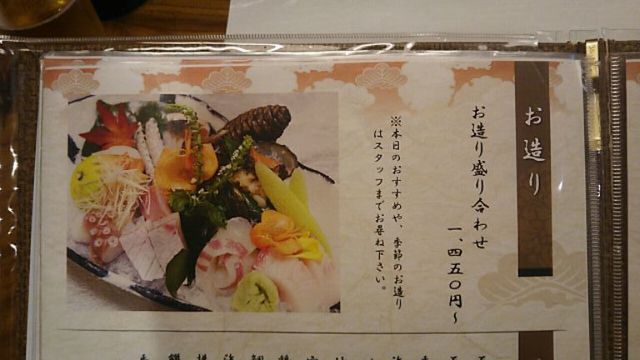 お造り
お造り盛り合わせ
一、四五〇円～
※本日のおすすめや、季節のお造り
はスタッフまでお尋ね下さい。